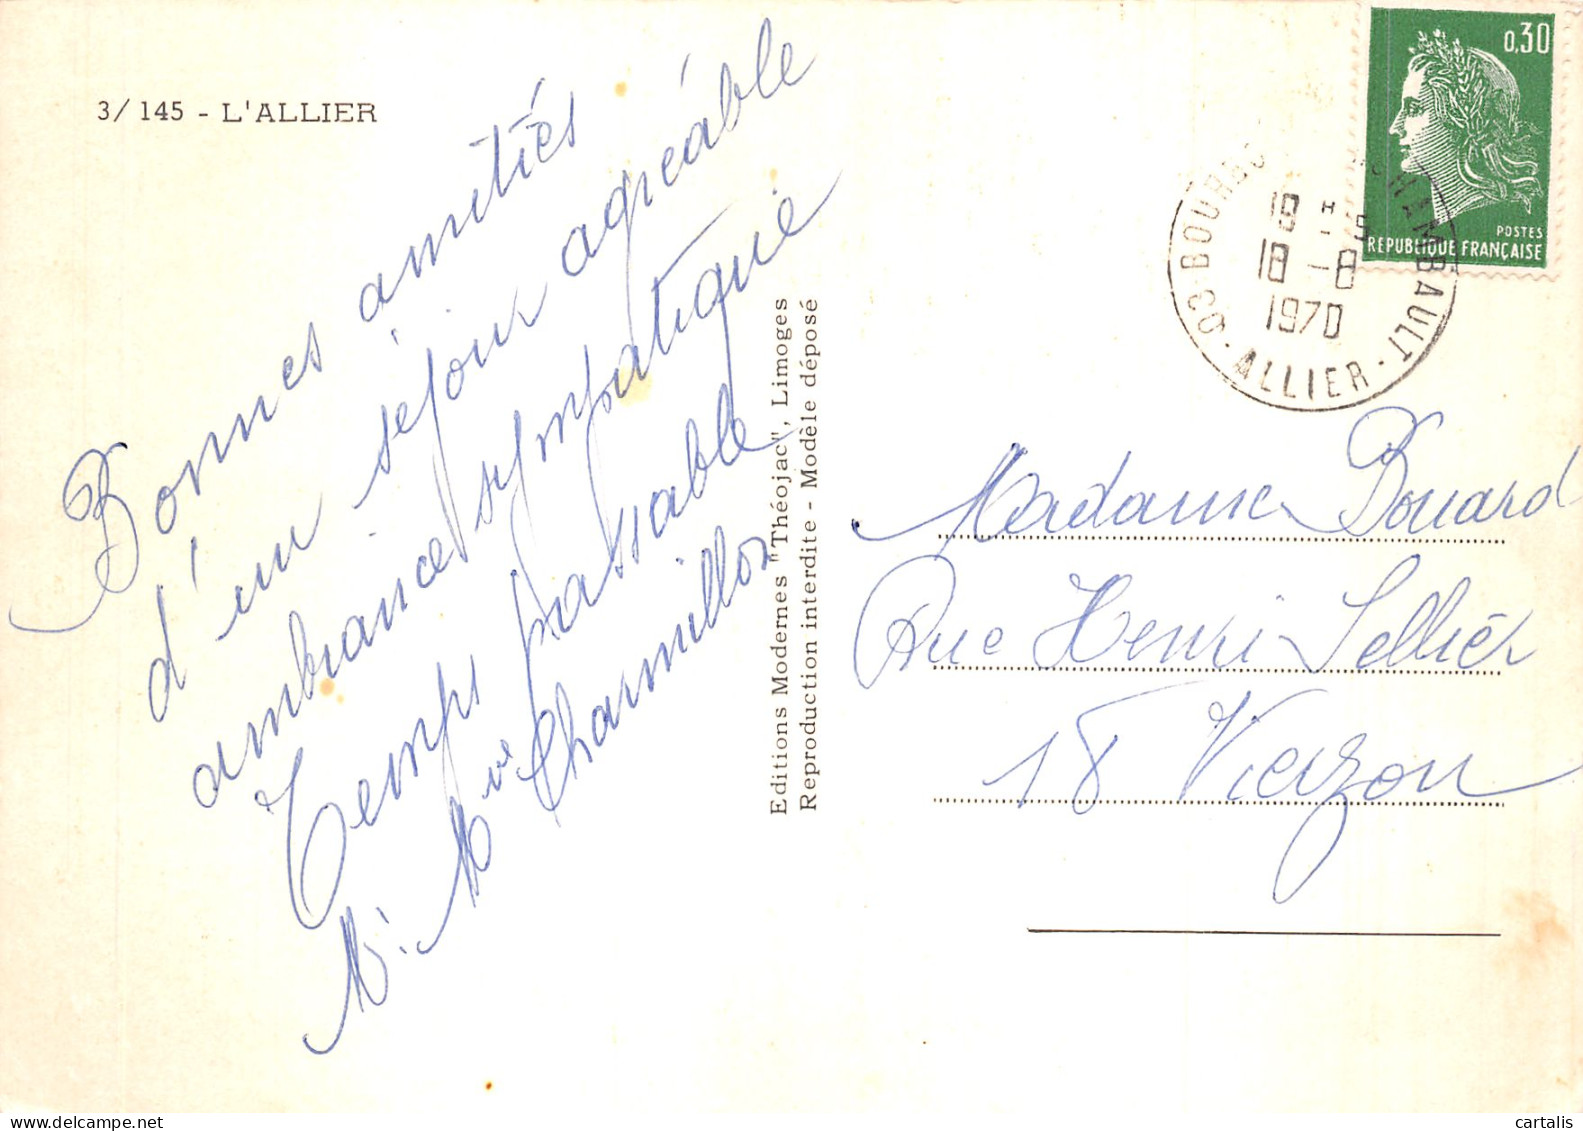 3/ 145 - L'ALLIER
Bonnes amitiés
d'un séjour agréable
ambiance sympatique
Temps passable
Mr. Mme Charmillon
Editions Modernes "Théojac", Limoges
Reproduction interdite - Modèle déposé
0,30
POSTES
REPUBLIQUE FRANÇAISE
03 BOURBO CHAMBAULT
18 -8
1970
ALLIER
Madame Bouard
Rue Henri Sellier
18 Vierzon
cartalis
www.delcampe.net